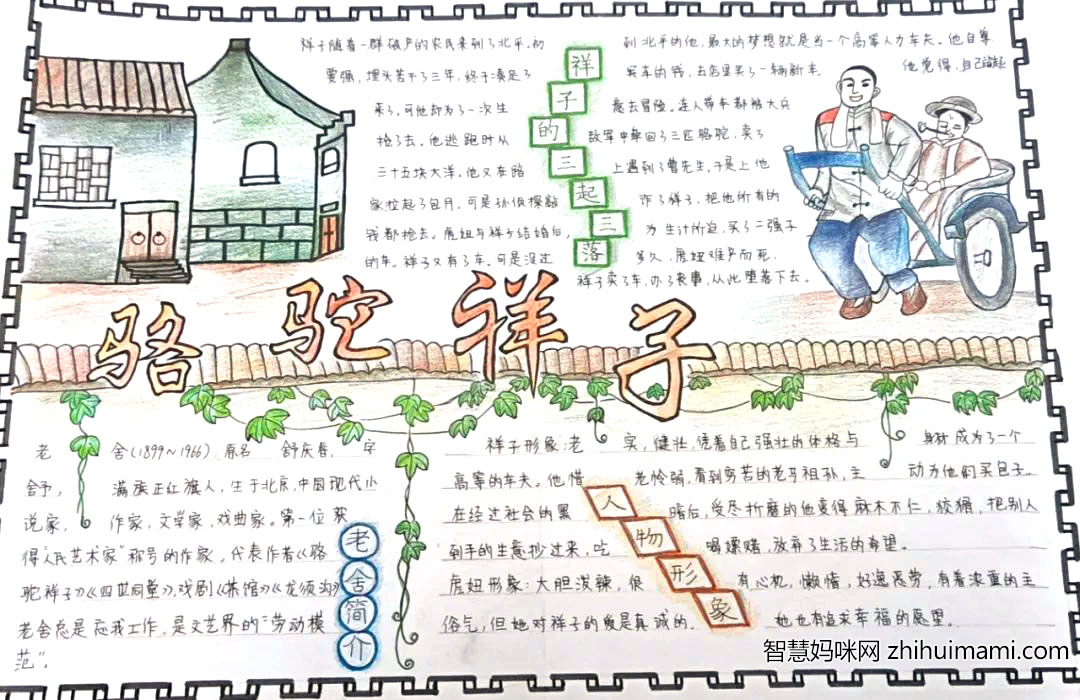 祥子随着一群破产的农民来到了北平,初到北平的他,最大的梦想就是当一个高等人力车夫。他自尊
要强,埋头苦干了三年,终于凑足了买车的钱,去店里买了一辆新车。他觉得,自己
来了,可他却为了一次生意去冒险。连人带车都被大兵
抢了去。他逃跑时从敌军中牵回了三匹骆驼,卖了
三十五块大洋,他又在路上遇到了曹先生,于是上他
家拉起了包月,可是孙侦探敲诈了祥子,把他所有的
钱都抢去。虎妞与祥子结婚后,为生计所迫,买了二强子
的车。祥子又有了车。可是没过多久,虎妞难产而死,
祥子卖了车,办了丧事,从此堕落下去。
祥子的三起三落
骆驼祥子
老舍(1899~1966),原名舒庆春,字
舍予,满族正红旗人,生于北京,中国现代小
说家,作家,文学家,戏曲家。第一位获
得“人民艺术家”称号的作家。代表作者《骆
驼祥子》《四世同堂》,戏剧《茶馆》《龙须沟》
老舍总是忘我工作,是文艺界的“劳动模
范”。
老舍简介
祥子形象:老实,健壮,凭着自己强壮的体格与身材成为了一个
高等的车夫。他惜老怜弱,看到穷苦的老马祖孙,主动为他们买包子。
在经过社会的黑暗后,受尽折磨的他变得麻木不仁,狡猾,把别人
到手的生意抄过来,吃喝嫖赌,放弃了生活的希望。
虎妞形象:大胆泼辣,很有心机,懒惰,好逸恶劳,有着浓重的主
俗气,但她对祥子的爱是真诚的,她也有追求幸福的愿望。
人物形象
智慧妈咪网 zhihuimami.com